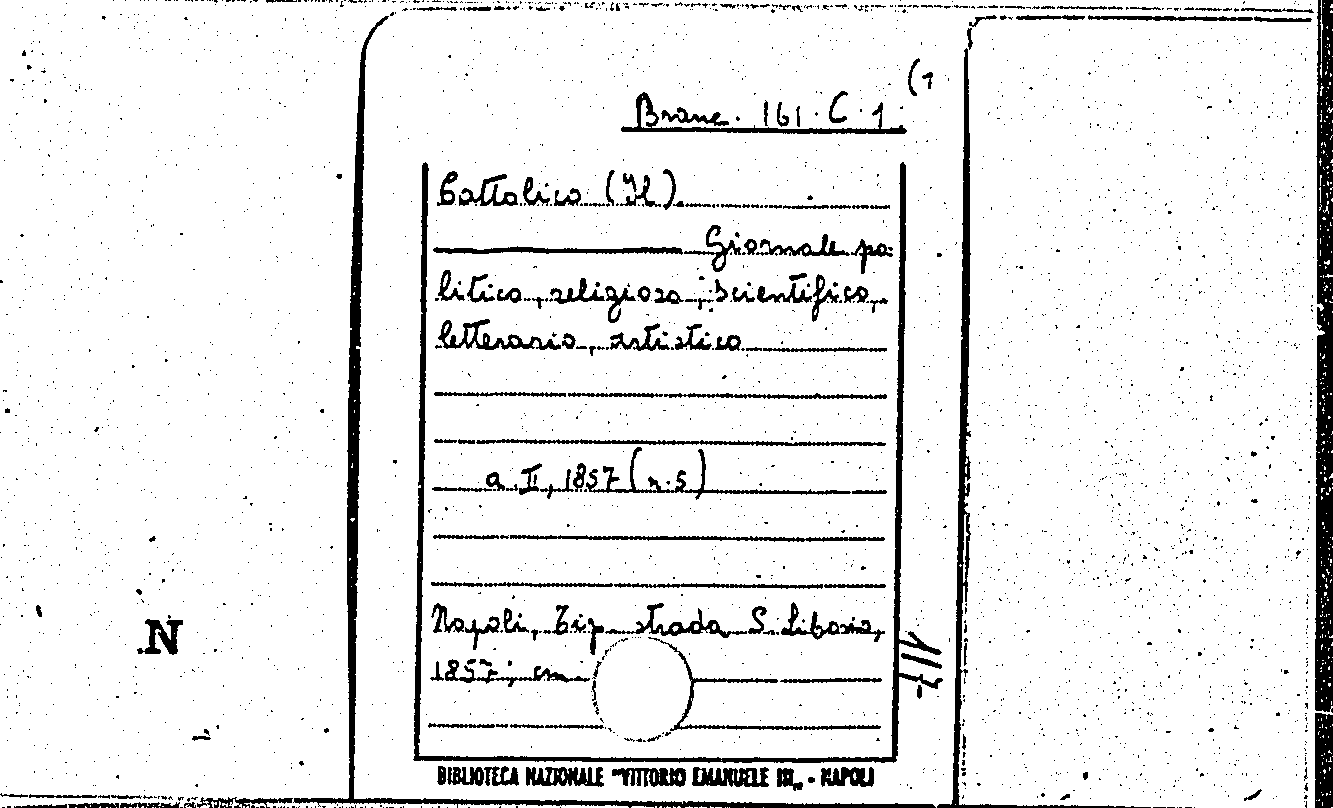 (1
Branc. 161. C. 1.
Cattolico (Il).
Giornale po-
litico, religioso, scientifico,
letterario, artistico
a. II, 1857 (n. 5)
Napoli, Tip. strada S. Liborio,
1857; cm.
N
BIBLIOTECA NAZIONALE "VITTORIO EMANUELE III„ - NAPOLI